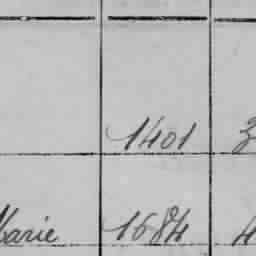 1401 3
Marie 1684 4